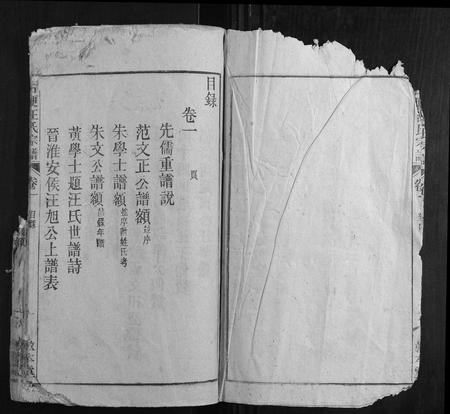 目錄
卷一
頁
先儒重譜說
范文正公譜額並序
朱學士譜額並序附姓氏考
朱文公譜額
黃學士題汪氏世譜詩
晉淮安侯汪旭公上譜表
汪氏宗譜
卷一 目錄